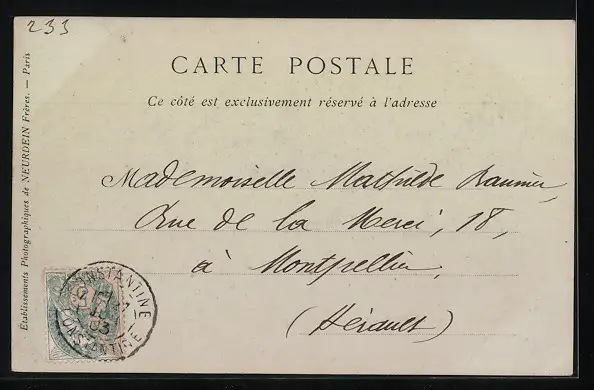 233
CARTE POSTALE
Ce côté est exclusivement réservé à l'adresse
Mademoiselle Mathilde
Rue de la Merci, 18,
à Montpellier,
(Hérault)
CONSTANTINE
03
CONSTANTINE
Établissements Photographiques de NEURDEIN Frères. — Paris